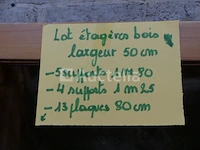 Lot étagères bois
largeur 50 cm
- 5 supports 1 m 80
- 4 supports 1 m 25
- 13 plaques 80 cm